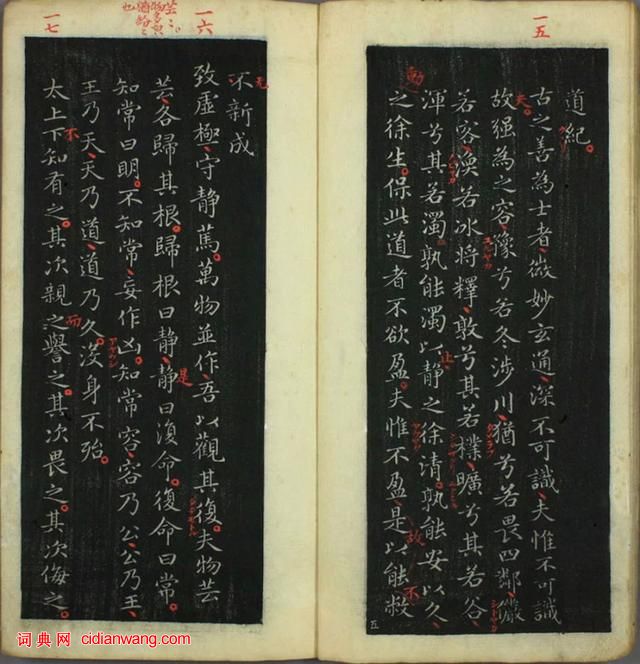 一五
道紀
古之善為士者微妙玄通深不可識夫惟不可識
夫
故强為之容豫兮若冬涉川猶兮若畏四鄰儼
若容渙若冰將釋敦兮其若樸曠兮其若谷
渾兮其若濁孰能濁以靜之徐清孰能安以久
止
動
之徐生保此道者不欲盈夫惟不盈是以能敝
故
不
五
一六
不新成
无
致虛極守靜篤萬物並作吾以觀其復夫物芸
芸各歸其根歸根曰靜靜曰復命復命曰常
是
知常曰明不知常妄作凶知常容容乃公公乃王
アヤウシ
王乃天天乃道道乃久沒身不殆
一七
太上下知有之其次親之譽之其次畏之其次侮之
不
而
词典网 cidianwang.com